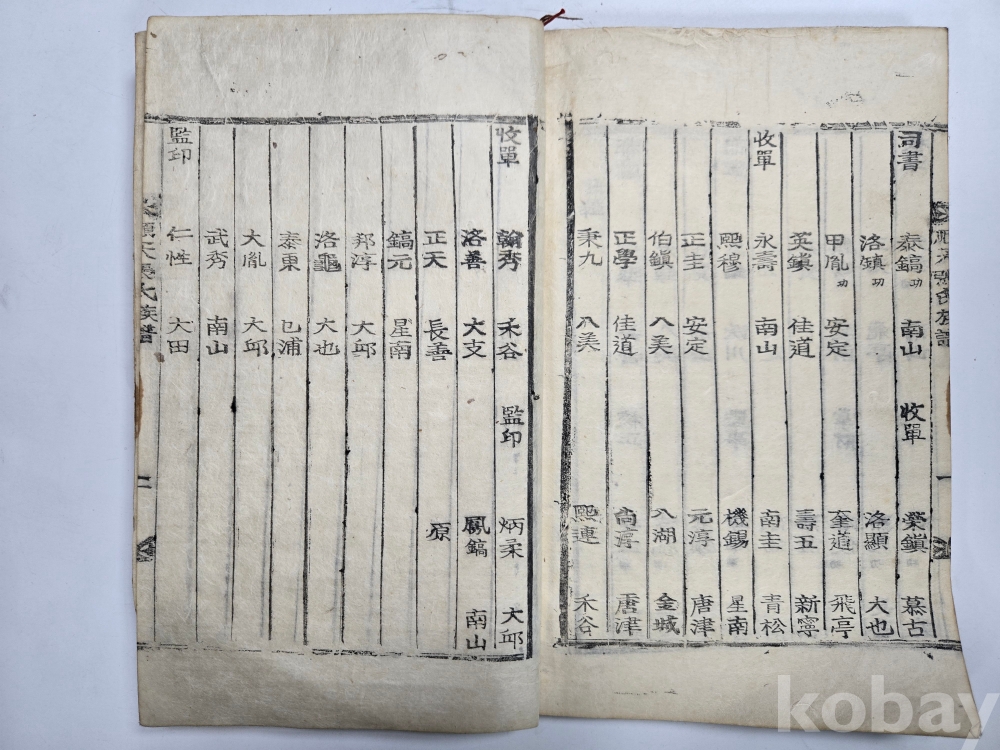 司書 泰鎬 功 南山 收單 榮鎭 慕古
洛鎭 功 洛顯 功 大也
甲胤 功 安定 奎道 飛亭
英鎭 佳道 壽五 新寧
收單 永壽 南山 南圭 青松
熙穆 機錫 星南
正圭 安定 元淳 唐津
伯鎭 八美 八湖 金城
正學 佳道 尙淳 唐津
秉九 八美 熙連 禾谷
收單 翰秀 禾谷 監印 炳柔 大邱
洛善 大支 鳳鎬 南山
正天 長善 原
鎬元 星南
邦淳 大邱
洛龜 大也
泰東 已浦
大胤 大邱
武秀 南山
監印 仁性 大田
順天張氏族譜 二
kobay